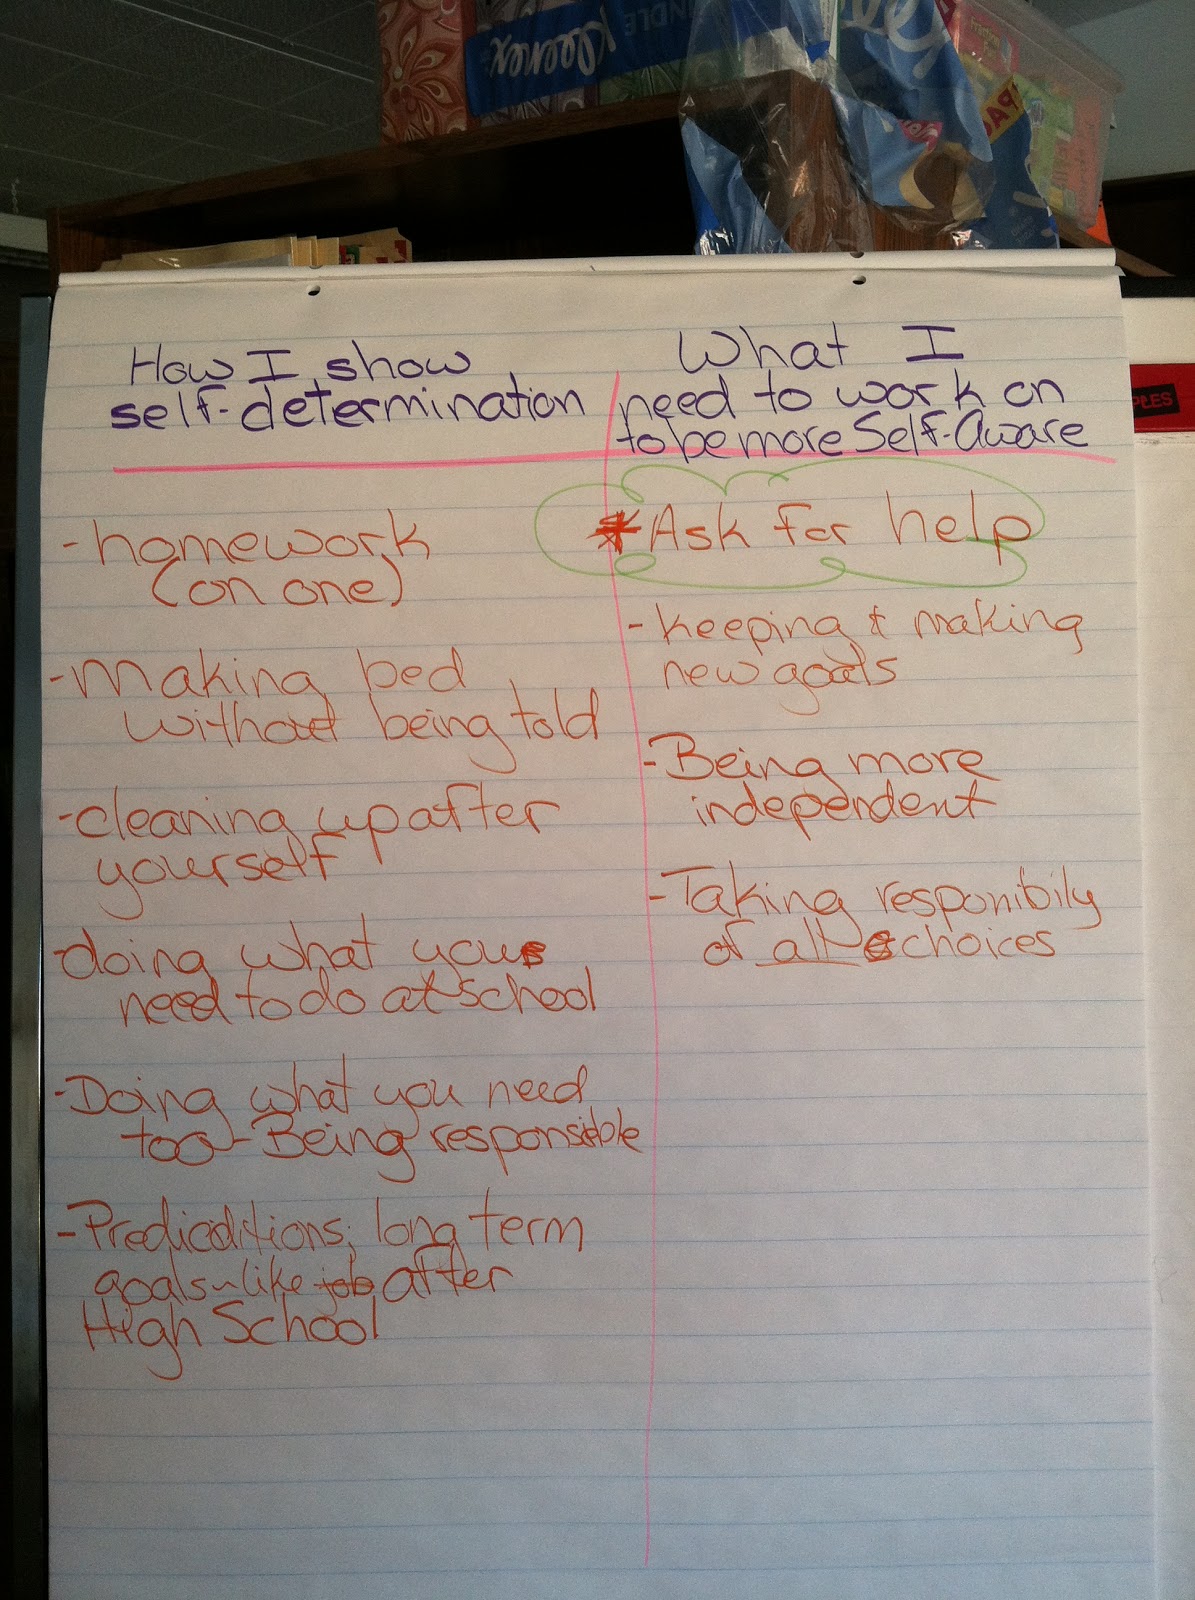 Kleenex
How I show
self-determination
- homework
(on one)
- Making bed
without being told
- cleaning up after
yourself
- doing what you
need to do at school
- Doing what you need
too - Being responsible
- Predicditions, long term
goals - like job after
High School
What I
need to work on
to be more Self-Aware
* Ask for help
- keeping & making
new goals
- Being more
independent
- Taking responibily
of all choices